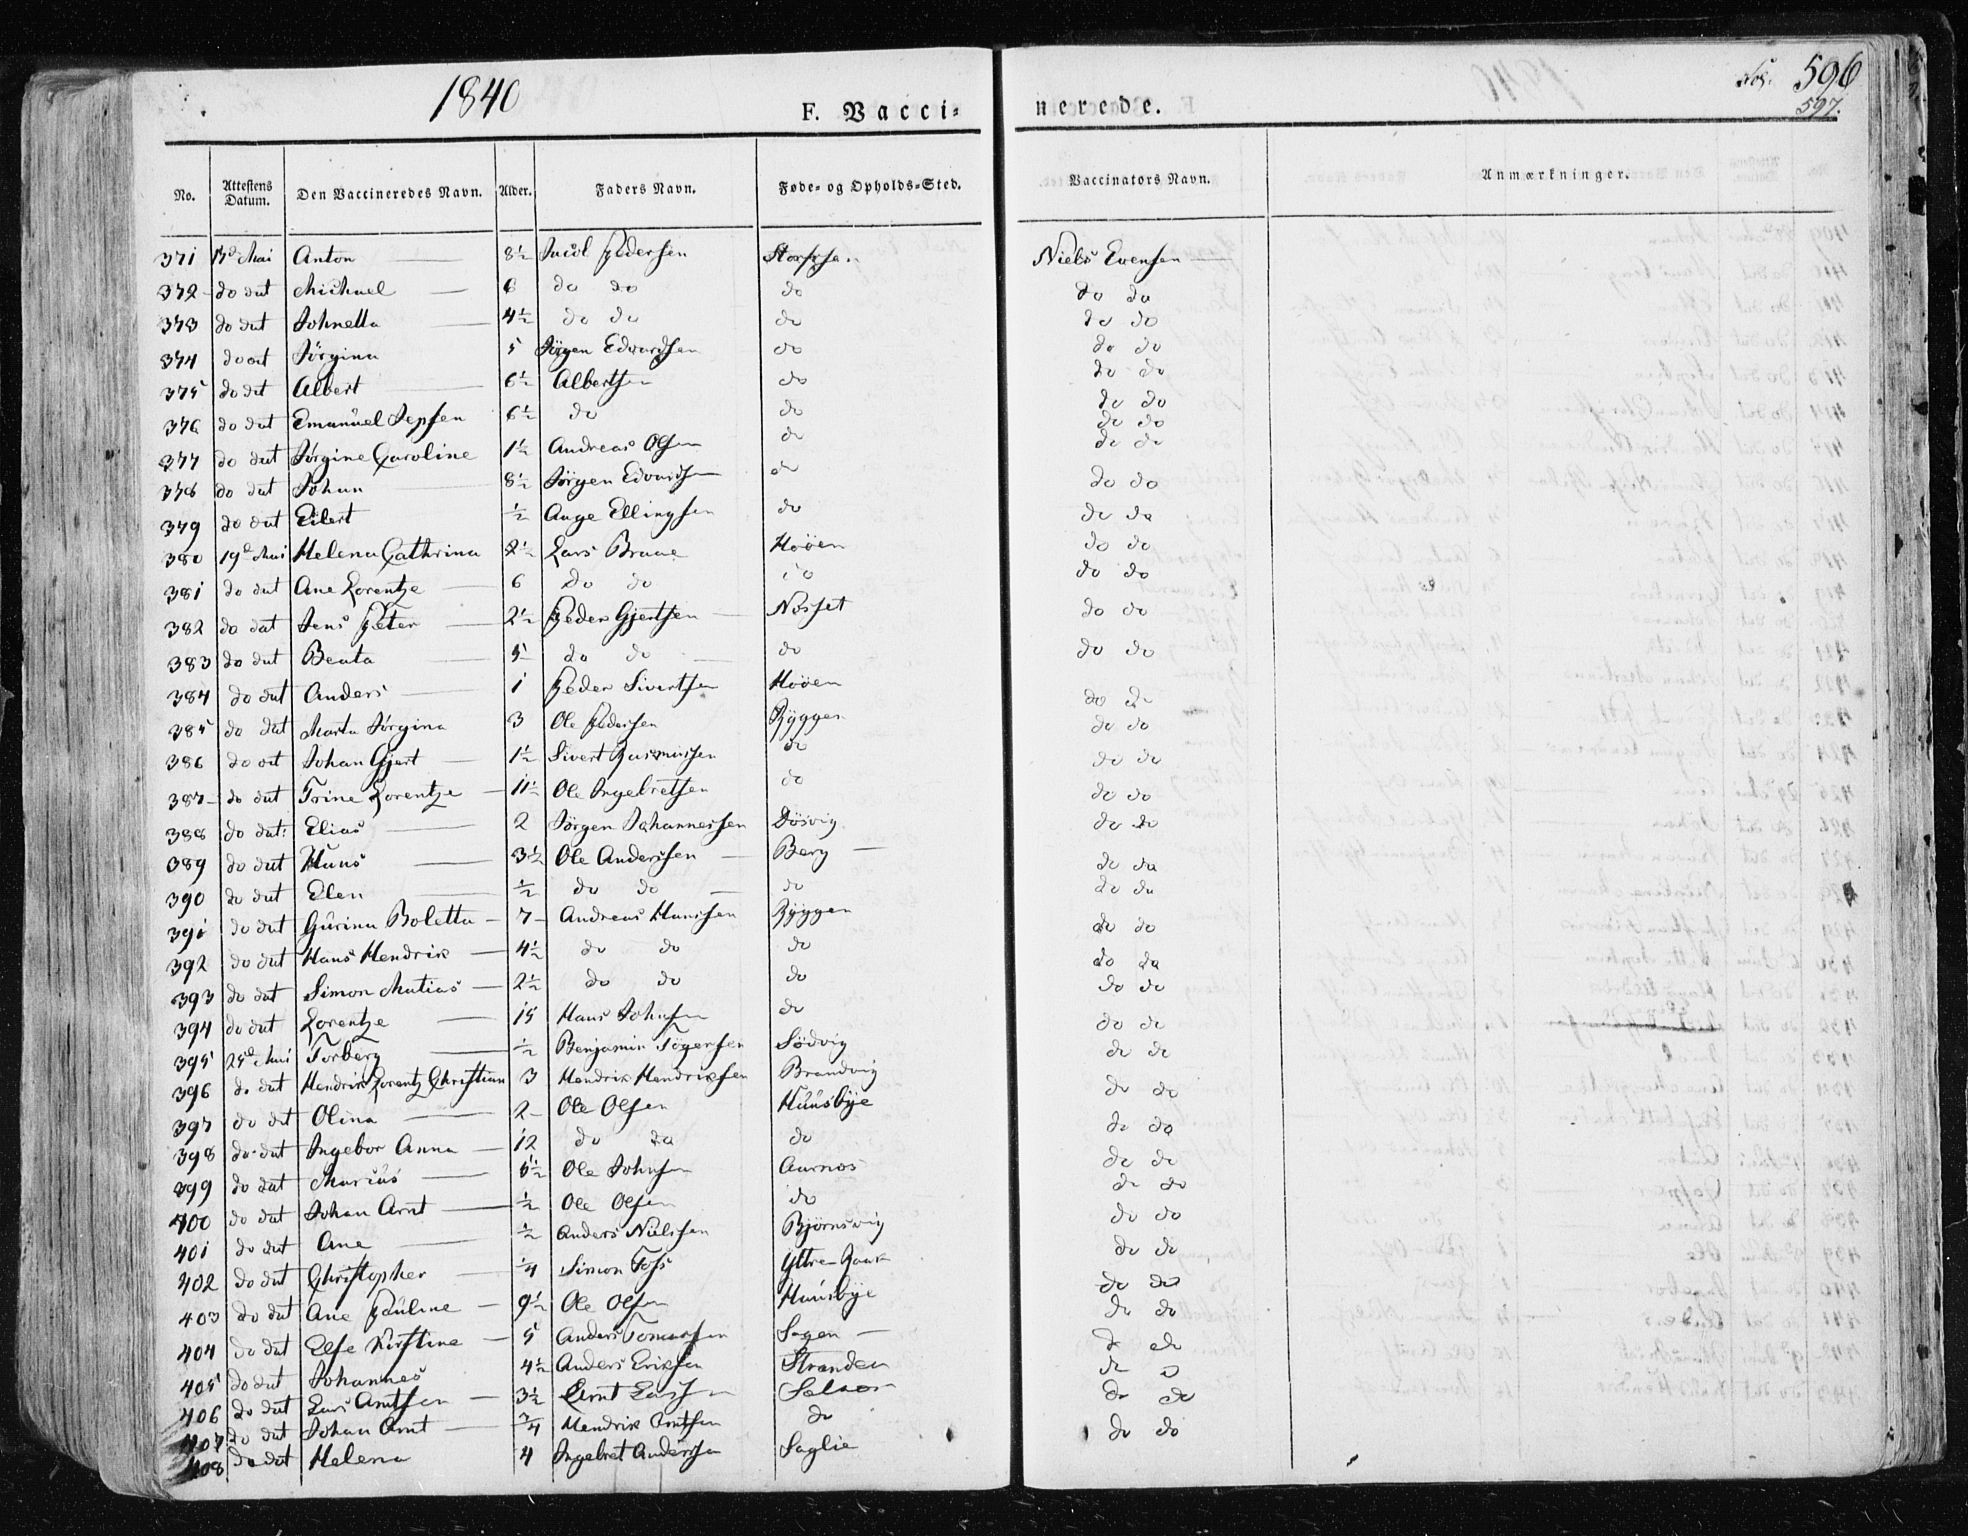 1840
F. Vacci-
nerede.
Fol. 596
597.
No. Attestens Datum. Den Vaccineredes Navn. Alder. Faders Navn. Føde- og Opholds-Sted. Vaccinators Navn. Anmærkninger.
371 Mai Anton 8½ Pedersen Niels Evensen
372 do dat Michael 6 do do do do do
373 do dat Johnetta 4½ do do do do do
374 do dat Jørgina 5 Jørgen Edvardsen do do do
375 do dat Albert 6½ Albertsen do do do
376 do dat Emanuel Jepsen 6½ do do do do
377 do dat Jørgine Caroline 1½ Andreas Olsen do do do
378 do dat Johan 8½ Jørgen Edvardsen do do do
379 do dat Eilert ½ Ellingsen do do do
380 19d Mai Helena Cathrina 2½ Lars Høøen do do
381 do dat Ane Lorentze 6 do do do do do
382 do dat Jens Peter 2½ Peder Gjertsen Nosset do do
383 do dat Beata 5 do do do do do
384 do dat Anders 1 Peder Sivertsen Høøen do do
385 do dat Marta Jørgina 3 Ole Pedersen Ryggen do do
386 do dat Johan Gjert 1½ Sivert Rasmussen do do do
387 do dat Trine Lorentze 11½ Ole Ingebretsen do do do
388 do dat: Elias 2 Jørgen Johannessen Døsvig do do
389 do dat Hans 3½ Ole Anderssen Berg do do
390 do dat Elen ½ do do do do do
391 do dat Gurina Boletta 7 Andreas Hanssen Ryggen do do
392 do dat Hans Hendrik 4½ do do do do do
393 do dat Simon Matias 2½ do do do do do
394 do dat Lorentze 15 Hans Johnsen do do do
395 25d Mai Torberg ½ Benjamin Tøgersen Sødvig do do
396 do dat Hendrik Lorentz Christian 3 Hendrik Hendriksen Brandvig do do
397 do dat Olina 2 Ole Olsen Huusbye do do
398 do dat Ingebor Anna 12 do do do do do
399 do dat Marius Ole Johnsen Aurnos do do
400 do dat Johan Arnt ½ Ole Olsen do do do
401 do dat Ane ½ Anders Nielssen Bjørnsvig do do
402 do dat Christopher ¼ Simon Foss Yttre- do do
403 do dat Ane Pauline 9½ Ole Olsen Huusbye do do
404 do dat Else Kirstine 5 Anders Sagen do do
405 do dat Johannes 4½ Anders Eriksen Stranden do
406 do dat Lars Arntsen 3½ Arnt Larssen Selnes do do
407 do dat Johan Arnt ¾ Hendrik Arntsen do do do
408 do dat Helena 4 Ingebret Anderssen Saglie